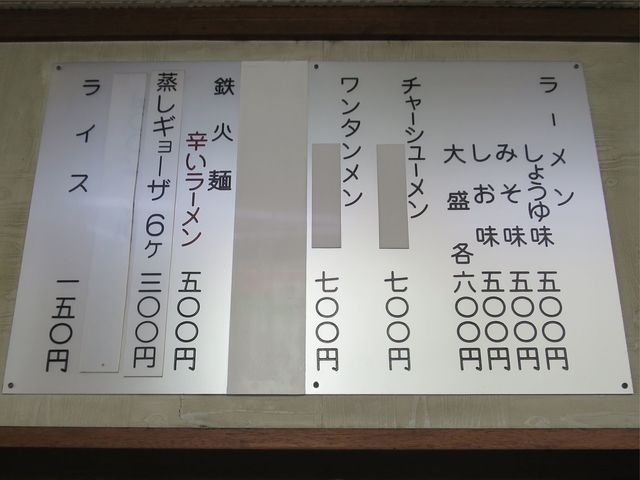 ラーメン
しょうゆ味 五〇〇円
みそ味 五〇〇円
しお味 五〇〇円
大盛各 六〇〇円
チャーシューメン 七〇〇円
ワンタンメン 七〇〇円
鉄火麺
辛いラーメン 五〇〇円
蒸しギョーザ 6ヶ 三〇〇円
ライス 一五〇円